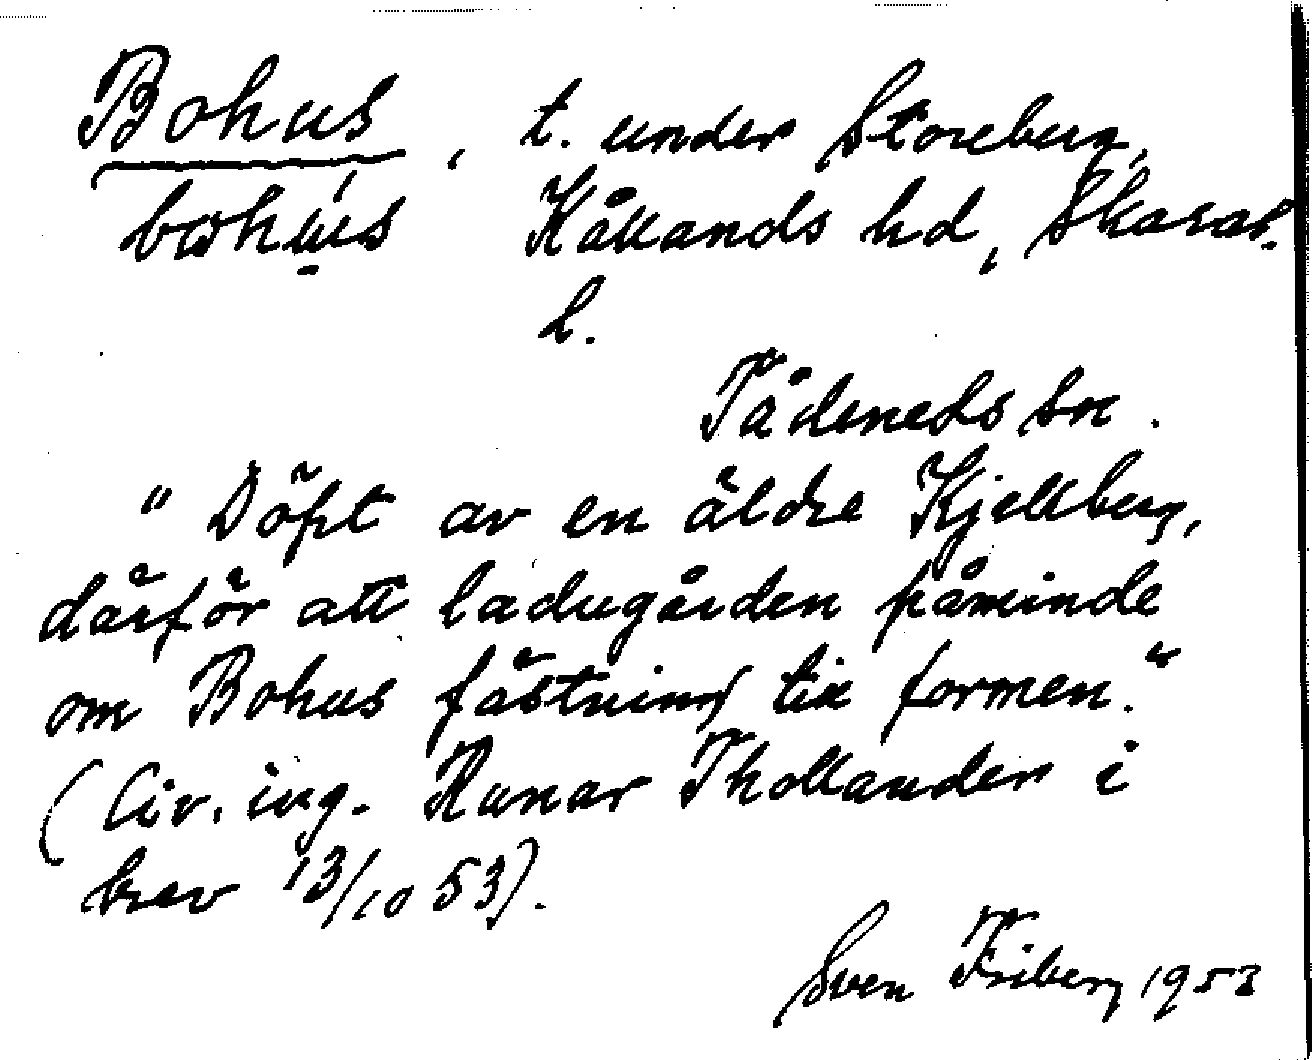 Bohus, t. under Storeberg,
bohus Kållands hd, Skarab.
l.
Tådeneds sn.
"Döpt av en äldre Kjellberg,
därför att ladugården påminde
om Bohus fästning till formen."
(Civ. ing. Runar Thollander i
brev 13/10 53).
Sven Friberg 1953